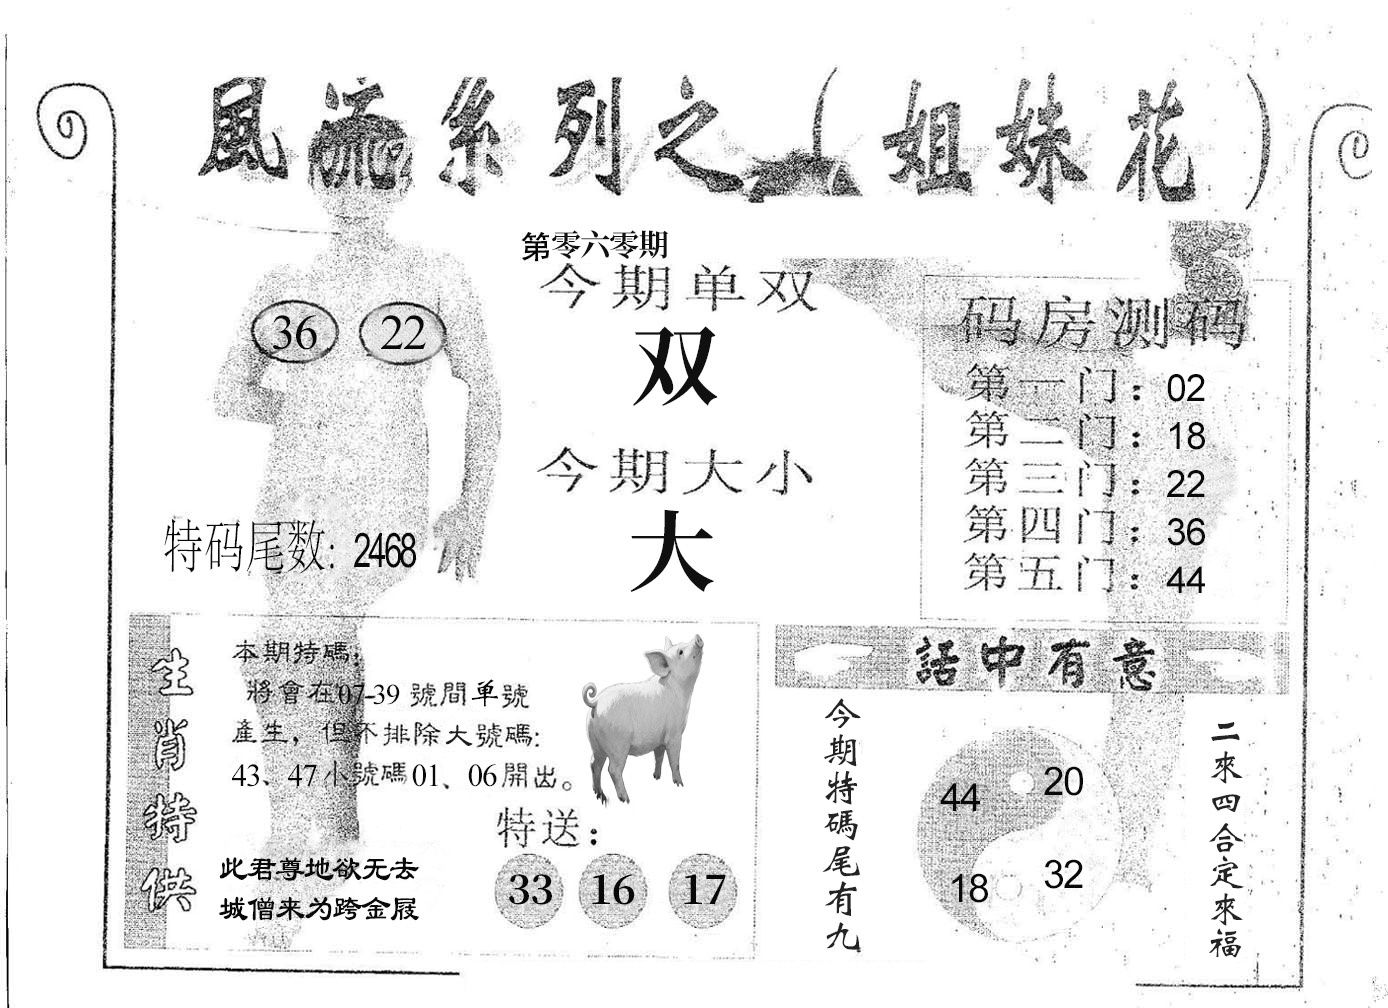 風流系列之（姐妹花）
第零六零期
今期单双
双
今期大小
大
36 22
特码尾数：2468
码房测码
第一门：02
第二门：18
第三门：22
第四门：36
第五门：44
生肖特供
本期特碼，
將會在07-39號間单號
產生，但不排除大號碼：
43、47小號碼01、06開出。
特送：
33 16 17
此君尊地欲无去
城僧来为跨金屐
話中有意
今期特碼尾有九
44 20
18 32
二來四合定來福